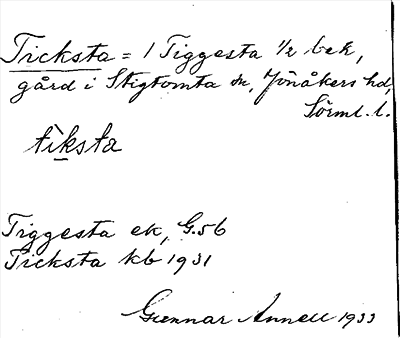 Ticksta = 1 Tiggesta 1/2 bek,
gård i Stigtomta sn, Jönåkers hd,
Sörml. l.
tìksta
Tiggesta ek, G.5b
Ticksta kb 1931
Gunnar Annell 1933